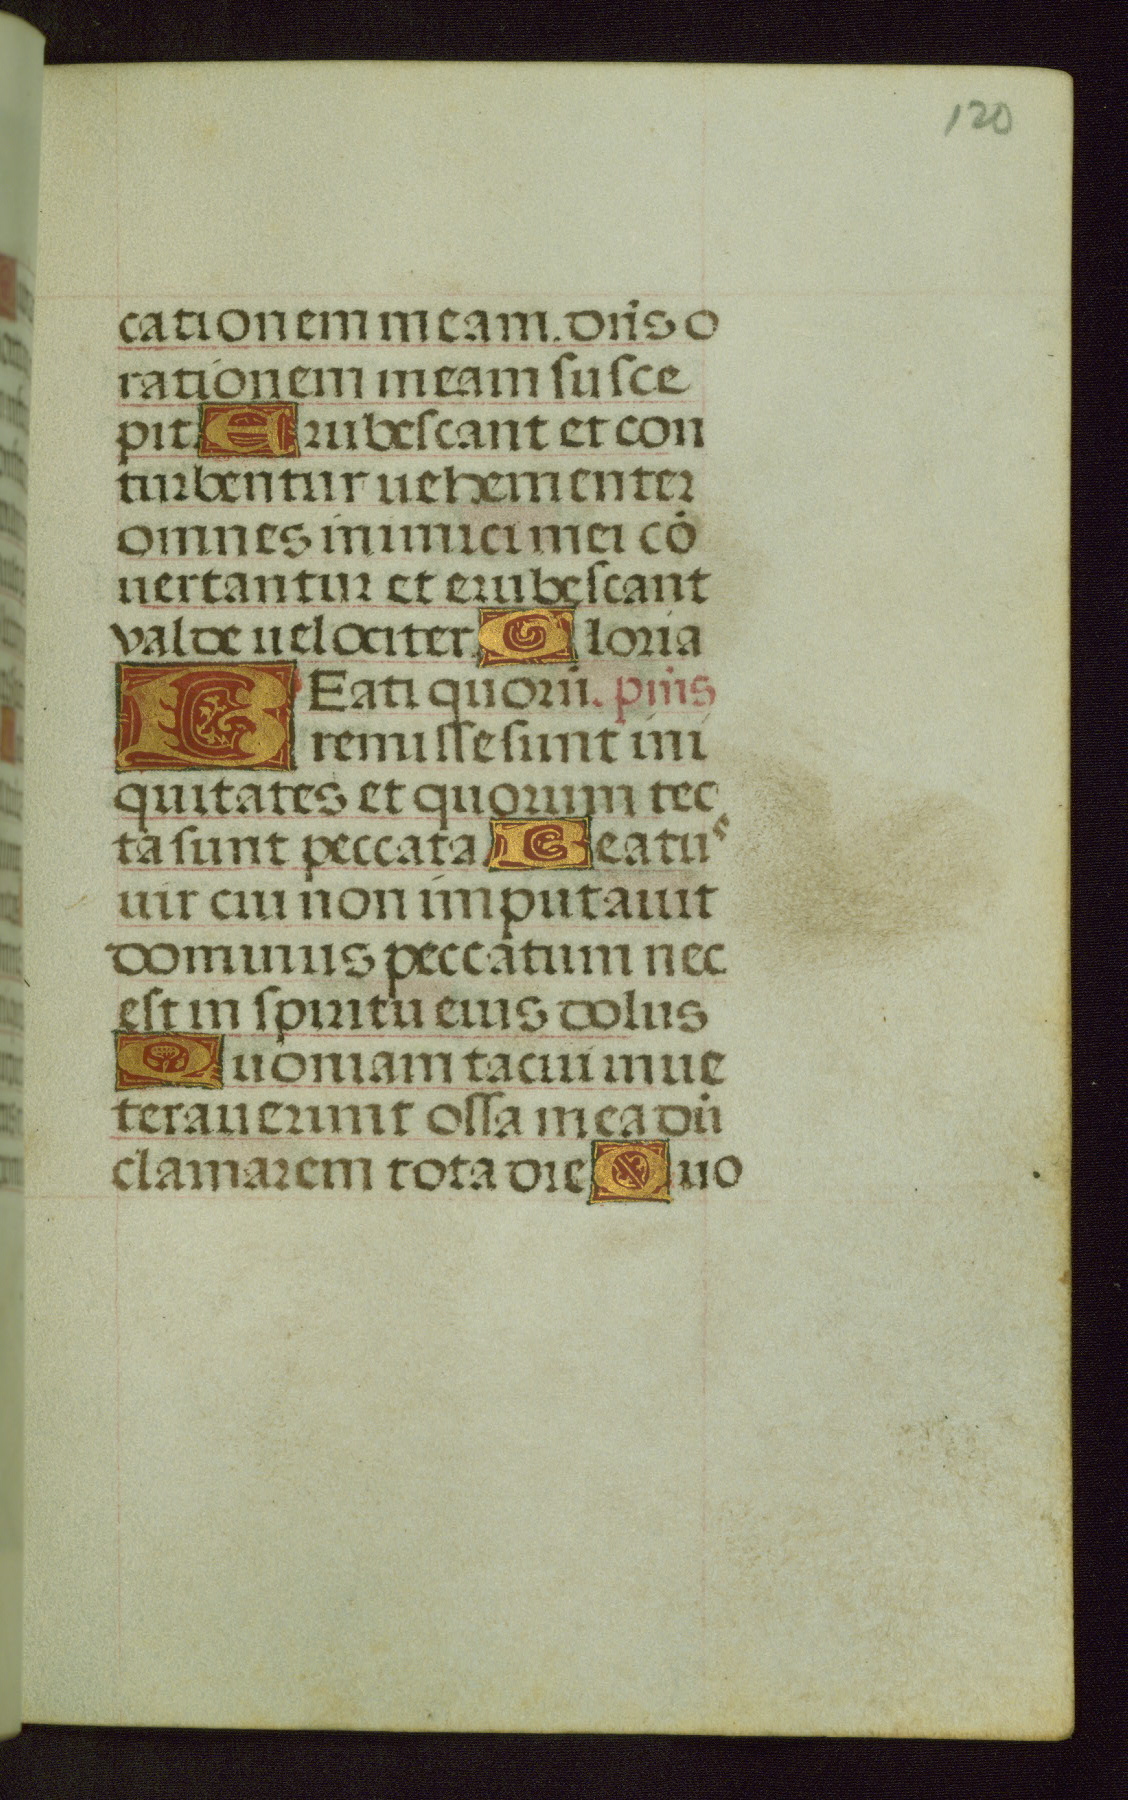 120
cationem meam. dn̄s o
rationem meam susce
pit. Erubescant et con
turbentur uehementer
omnes inimici mei cō
uertantur et erubescant
valde uelociter. Gloria
BEati quorū. psm̄s
remisse sunt ini
quitates et quorum tec
ta sunt peccata. Beatus
uir cui non imputauit
dominus peccatum nec
est in spiritu eius dolus
Quoniam tacui inue
terauerunt ossa mea dū
clamarem tota die. Quo